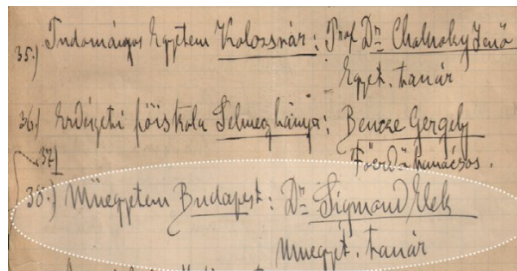 35.) Tudományos Egyetem Kolozsvár: Prof Dr. Cholnoky Jenő
Egyet. tanár
36) Erdészeti főiskola Selmeczbánya: Bencze Gergely
Főerdőtanácsos.
37)
38.) Műegyetem Budapest: Dr. Sigmond Elek
Műegyet. tanár